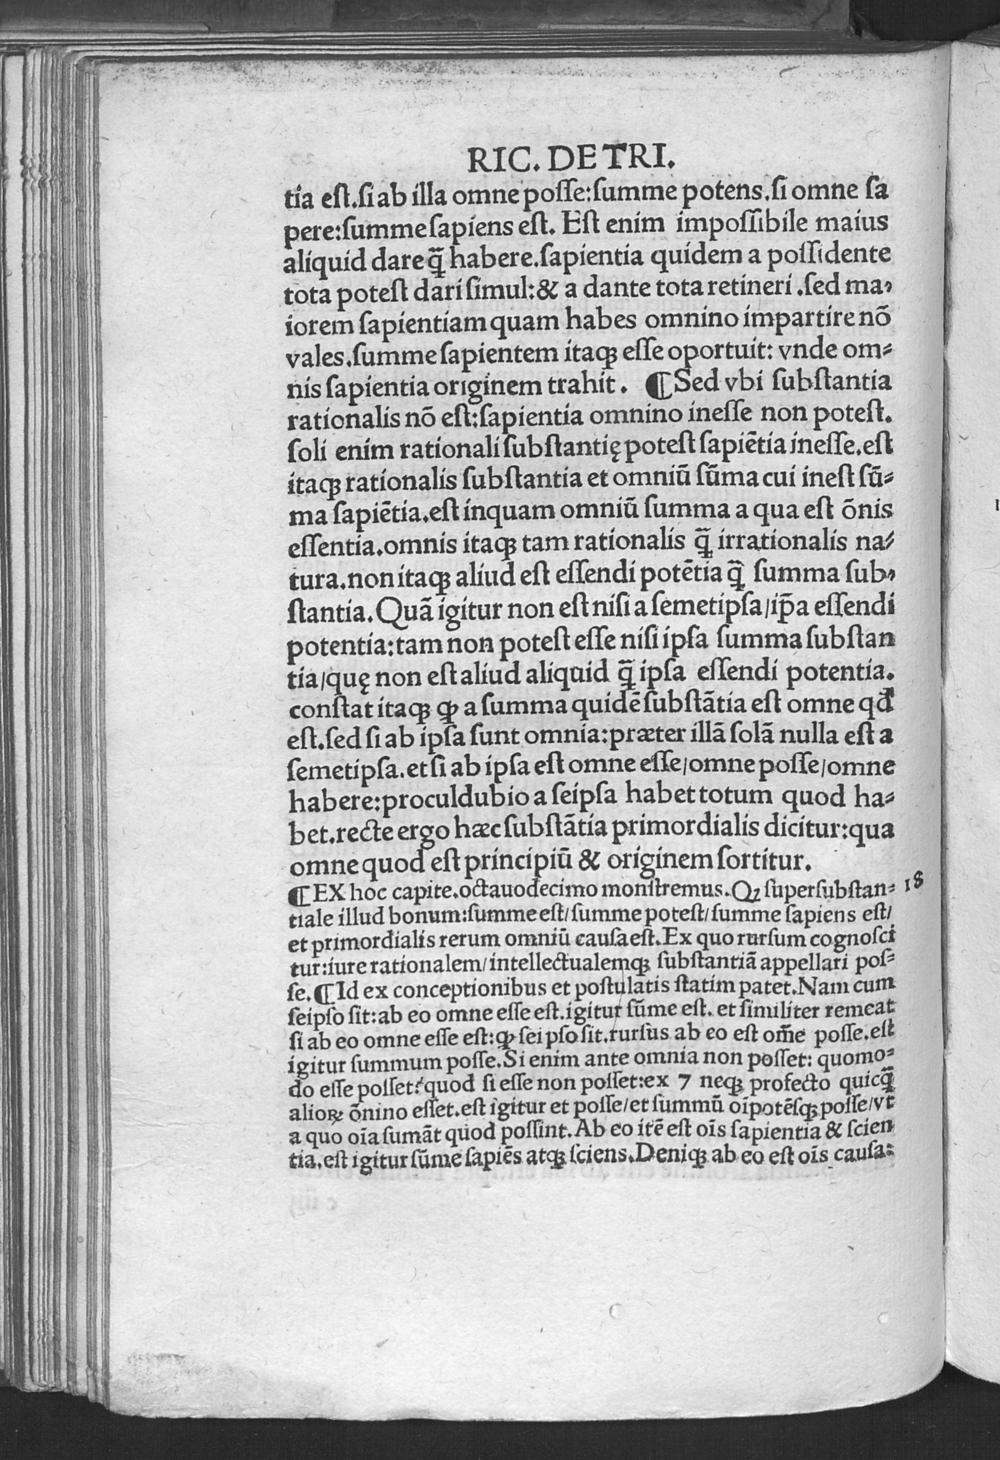 RIC. DE TRI.
tia eſt.ſi ab illa omne poſſe:ſumme potens.ſi omne ſa
pere:ſumme ſapiens eſt. Eſt enim impoſſibile maius
aliquid dare q̃ habere.ſapientia quidem a poſſidente
tota poteſt dari ſimul:& a dante tota retineri .ſed ma⸗
iorem ſapientiam quam habes omnino impartire nõ
vales.ſumme ſapientem itaqꝫ eſſe oportuit: vnde om⸗
nis ſapientia originem trahit. ¶Sed vbi ſubſtantia
rationalis nõ eſt:ſapientia omnino ineſſe non poteſt.
ſoli enim rationali ſubſtantię poteſt ſapiẽtia ineſſe.eſt
itaqꝫ rationalis ſubſtantia et omniũ ſũma cui ineſt ſũ⸗
ma ſapiẽtia.eſt inquam omniũ ſumma a qua eſt õnis
eſſentia.omnis itaqꝫ tam rationalis q̃ irrationalis na⸗
tura.non itaqꝫ aliud eſt eſſendi potẽtia q̃ ſumma ſub⸗
ſtantia.Quã igitur non eſt niſi a ſemetipſa/ip̃a eſſendi
potentia:tam non poteſt eſſe niſi ipſa ſumma ſubſtan
tia/quę non eſt aliud aliquid q̃ ipſa eſſendi potentia.
conſtat itaqꝫ ꝙ a ſumma quidẽ ſubſtãtia eſt omne qd̃
eſt.ſed ſi ab ipſa ſunt omnia:præter illã ſolã nulla eſt a
ſemetipſa.et ſi ab ipſa eſt omne eſſe/omne poſſe/omne
habere:proculdubio a ſeipſa habet totum quod ha⸗
bet.recte ergo hæc ſubſtãtia primordialis dicitur:qua
omne quod eſt principiũ & originem ſortitur.
¶EX hoc capite.octauodecimo monſtremus.Qꝫ ſuperſubſtan⸗ 18
tiale illud bonum:ſumme eſt/ſumme poteſt/ſumme ſapiens eſt/
et primordialis rerum omniũ cauſa eſt.Ex quo rurſum cognoſci
tur:iure rationalem/intellectualemqꝫ ſubſtantiã appellari poſ⸗
ſe.¶Id ex conceptionibus et poſtulatis ſtatim patet.Nam cum
ſeipſo ſit:ab eo omne eſſe eſt.igitur ſũme eſt. et ſimiliter remeat
ſi ab eo omne eſſe eſt:ꝙ ſeipſo ſit.rurſus ab eo eſt om̃e poſſe.eſt
igitur ſummum poſſe.Si enim ante omnia non poſſet: quomo⸗
do eſſe poſſet?quod ſi eſſe non poſſet:ex 7 neqꝫ profecto quicq̃
alioꝝ õnino eſſet.eſt igitur et poſſe/et ſummũ oĩpotẽſqꝫ poſſe/vt
a quo oĩa ſumãt quod poſſint.Ab eo itẽ eſt oĩs ſapientia & ſcien
tia.eſt igitur ſũme ſapiẽs atqꝫ ſciens.Deniqꝫ ab eo eſt oĩs cauſa⸗